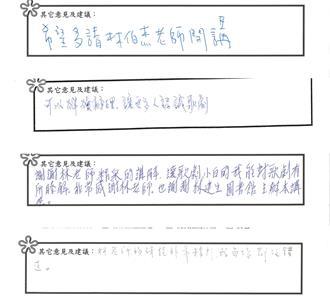 其它意見及建議：
希望多請林伯杰老師開講
其它意見及建議：
可以繼續辦理，讓更多人認識歌劇
其它意見及建議：
謝謝林老師精采的講解，讓歌劇小白的我能對歌劇有
所瞭解，非常感謝林老師，也謝謝林建生圖書館主辦本講
座。
其它意見及建議：